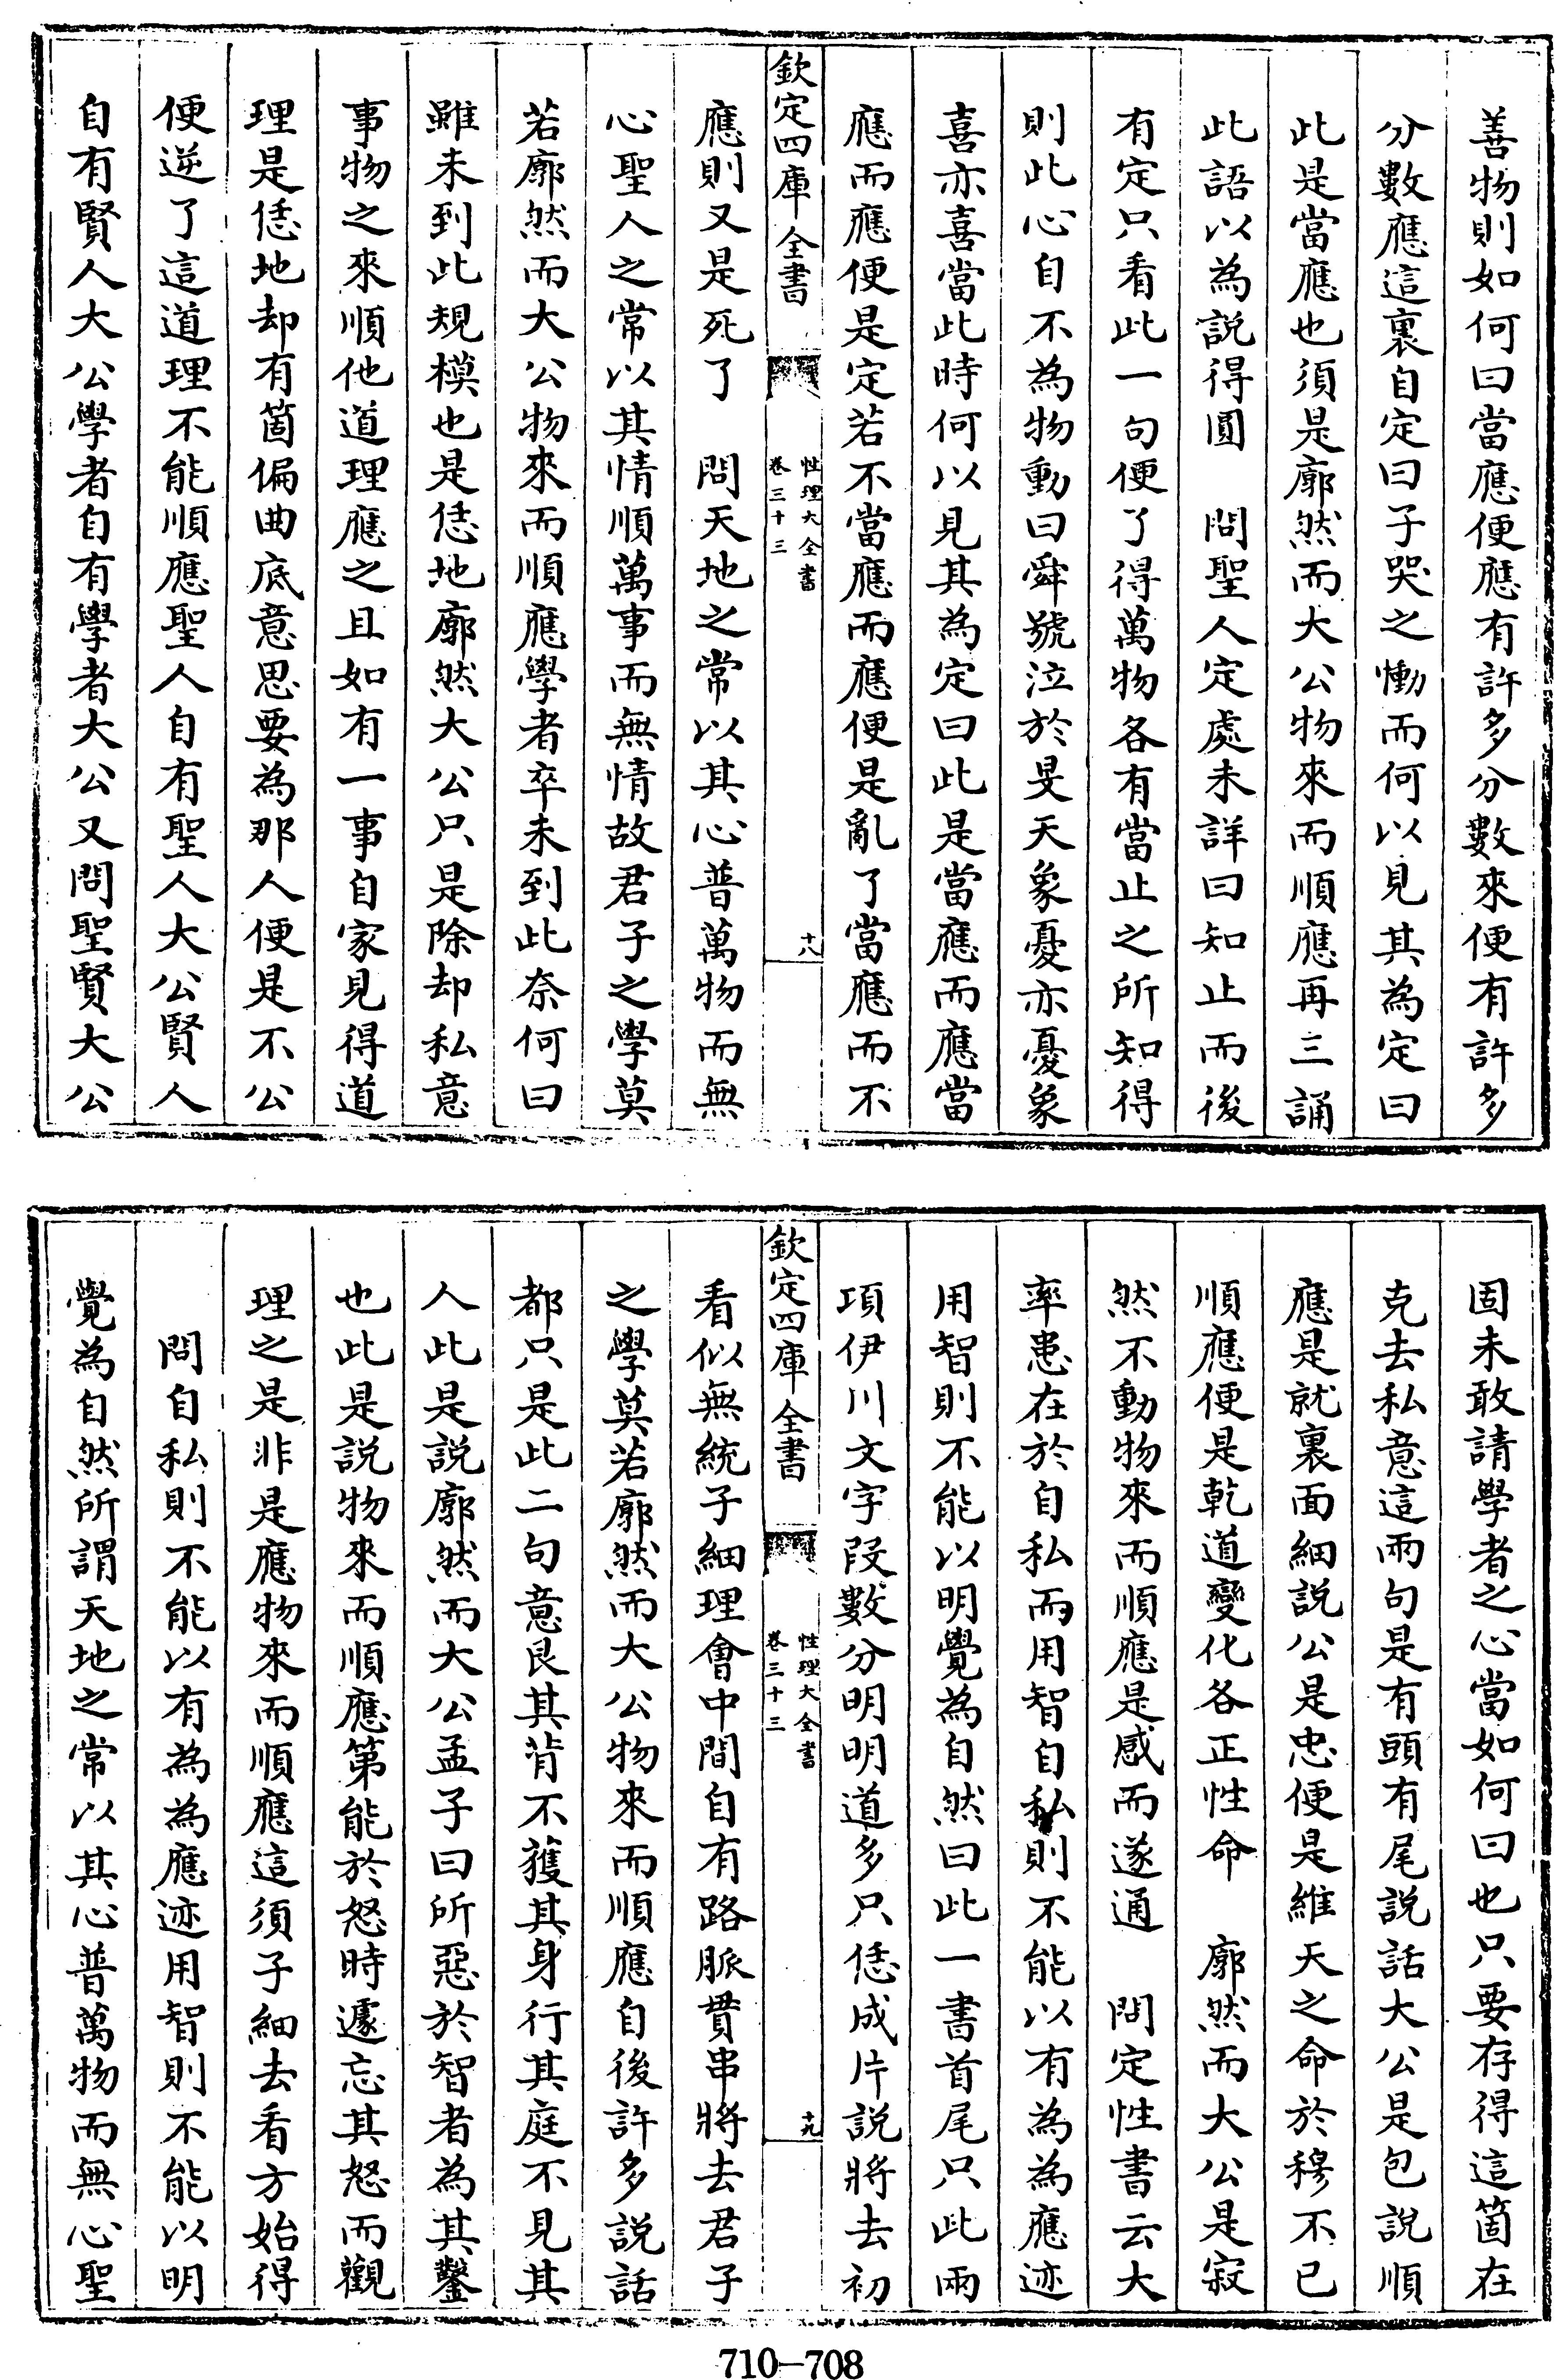 善物則如何曰當應便應有許多分數來便有許多
分數應這裏自定曰子哭之慟而何以見其為定曰
此是當應也須是廓然而大公物來而順應再三誦
此語以為說得圓　問聖人定處未詳曰知止而後
有定只看此一句便了得萬物各有當止之所知得
則此心自不為物動曰舜號泣於旻天象憂亦憂象
喜亦喜當此時何以見其為定曰此是當應而應當
應而應便是定若不當應而應便是亂了當應而不
欽定四庫全書
性理大全書
卷三十三
十八
應則又是死了　問天地之常以其心普萬物而無
心聖人之常以其情順萬事而無情故君子之學莫
若廓然而大公物來而順應學者卒未到此奈何曰
雖未到此規模也是恁地廓然大公只是除却私意
事物之來順他道理應之且如有一事自家見得道
理是恁地却有箇偏曲底意思要為那人便是不公
便逆了這道理不能順應聖人自有聖人大公賢人
自有賢人大公學者自有學者大公又問聖賢大公
固未敢請學者之心當如何曰也只要存得這箇在
克去私意這兩句是有頭有尾說話大公是包說順
應是就裏面細說公是忠便是維天之命於穆不已
順應便是乾道變化各正性命　廓然而大公是寂
然不動物來而順應是感而遂通　問定性書云大
率患在於自私而用智自私則不能以有為為應迹
用智則不能以明覺為自然曰此一書首尾只此兩
項伊川文字段數分明明道多只恁成片說將去初
欽定四庫全書
性理大全書
卷三十三
十九
看似無統子細理會中間自有路脈貫串將去君子
之學莫若廓然而大公物來而順應自後許多說話
都只是此二句意艮其背不獲其身行其庭不見其
人此是說廓然而大公孟子曰所惡於智者為其鑿
也此是說物來而順應第能於怒時遽忘其怒而觀
理之是非是應物來而順應這須子細去看方始得
問自私則不能以有為為應迹用智則不能以明
覺為自然所謂天地之常以其心普萬物而無心聖
710-708